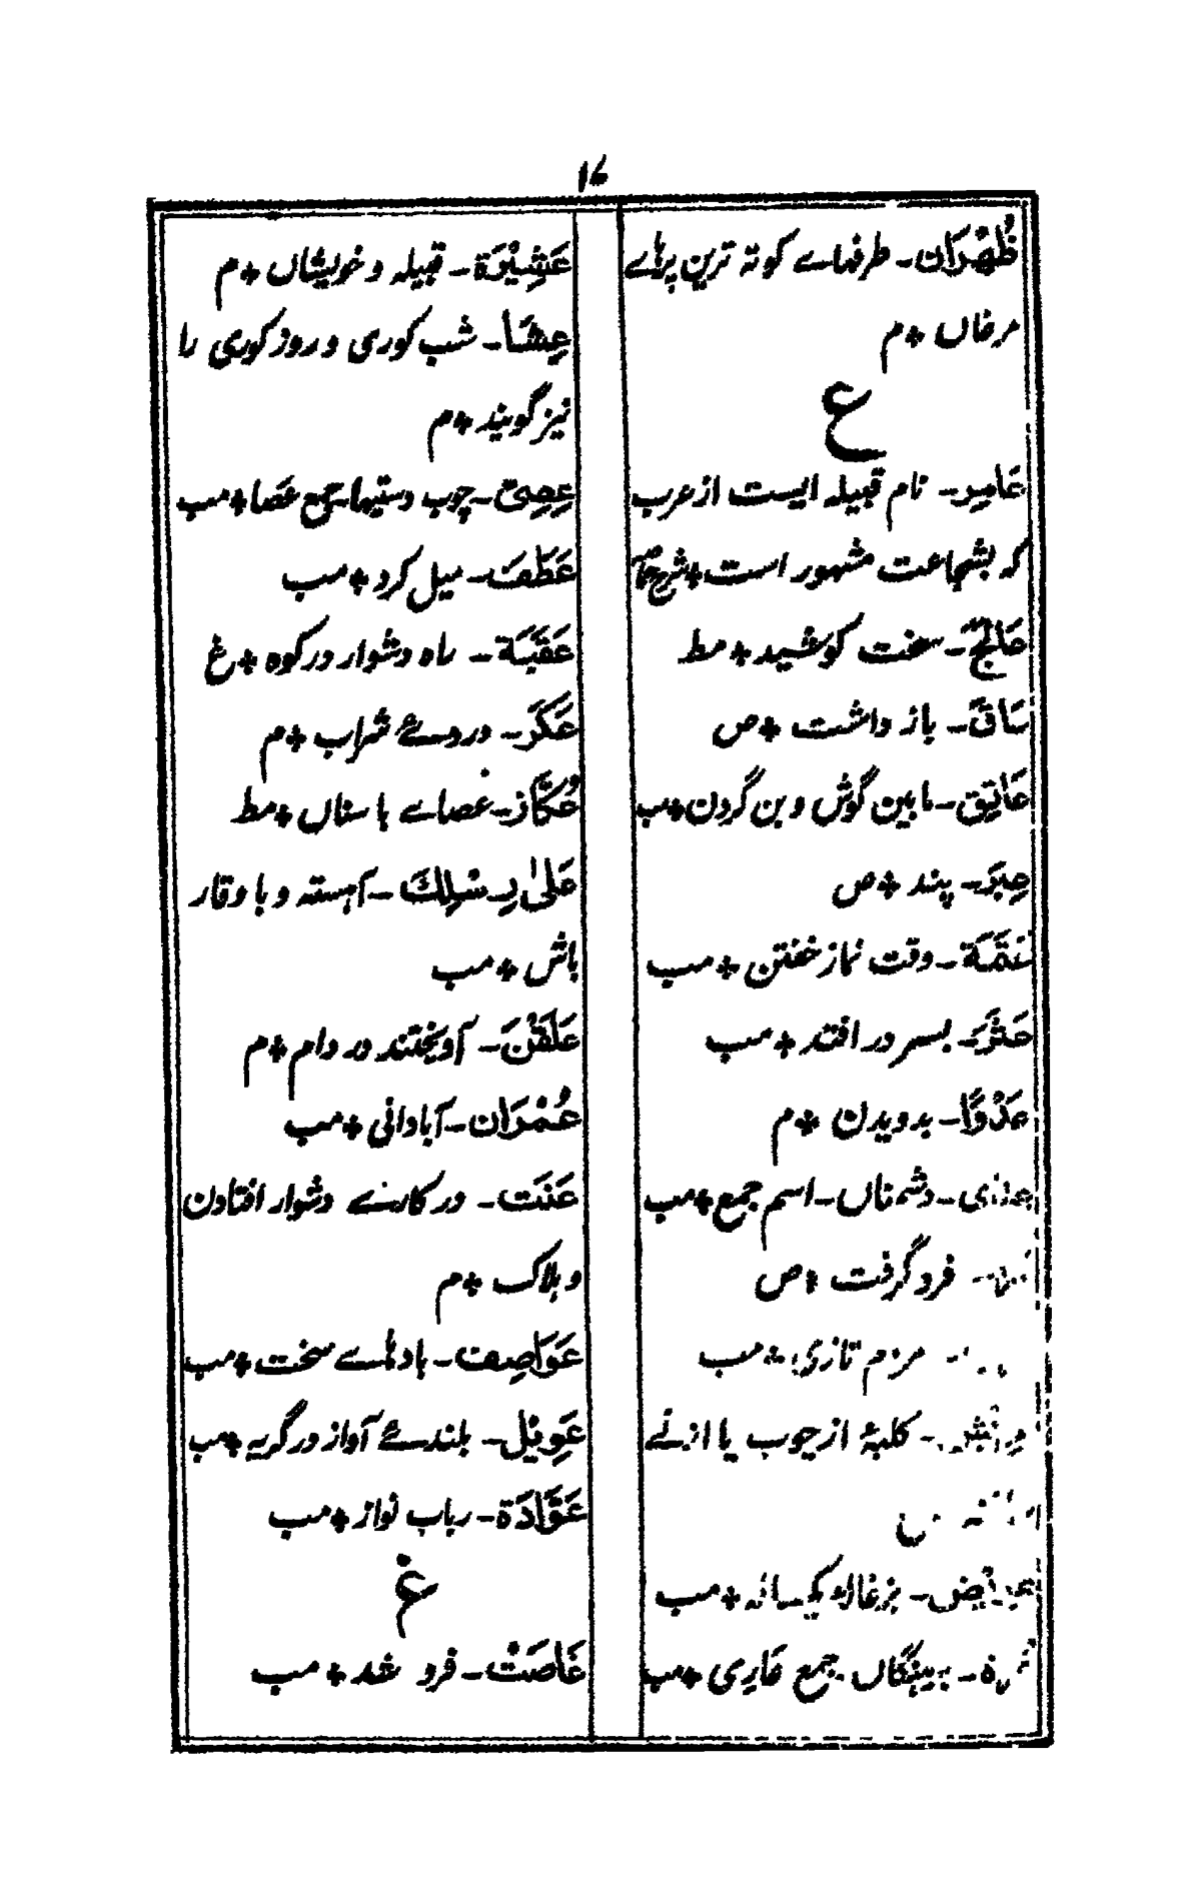 ۱۶
ظُهْرَان۔ طرفہاے کوتہ ترین پرہاے
مرغاں ٭ م
ع
عَامِر۔ نام قبیلہ ایست از عرب
کہ بشجاعت مشہور است ٭ شرح
عَالَجَ۔ سخت کوشید ٭ مط
عَاقَ۔ باز داشت ٭ ص
عَاتِق۔ مابین گوش و بن گردن ٭ مب
عِبَر۔ پند ٭ ص
عَتَمَة۔ وقت نماز خفتن ٭ مب
عَثَرَ۔ بسر در افتد ٭ مب
عَدْوًا۔ بدویدن ٭ م
عدٰی۔ دشمناں۔ اسم جمع ٭ مب
فرو گرفت ٭ ص
مردم تازی ٭ مب
کلبۂ از چوب یا از نے
بزغالہ یکسالہ ٭ مب
برہنگاں جمع عَارِی ٭ مب
عَشِيْرَة۔ قبیلہ و خویشاں ٭ م
عِشَا۔ شب کوری و روز کوری را
نیز گویند ٭ م
عِصِيّ۔ چوب دستیہا۔ جمع عَصا ٭ مب
عَطَفَ۔ میل کرد ٭ مب
عَقَبَة۔ راہ دشوار در کوہ ٭ غ
عَكَر۔ دردے شراب ٭ م
عُكَّاز۔ عصاے با سناں ٭ مط
عَلىٰ رِسْلِكَ۔ آہستہ و با وقار
باش ٭ مب
عَلَقْنَ۔ آویختند در دام ٭ م
عُمْرَان۔ آبادانی ٭ مب
عَنَت۔ در کارے دشوار افتادن
و ہلاک ٭ م
عَوَاصِف۔ بادہاے سخت ٭ مب
عَوِيْل۔ بلندے آواز در گریہ ٭ مب
عَوَّادَة۔ رباب نواز ٭ مب
غ
غَاصَتْ۔ فرو شد ٭ مب